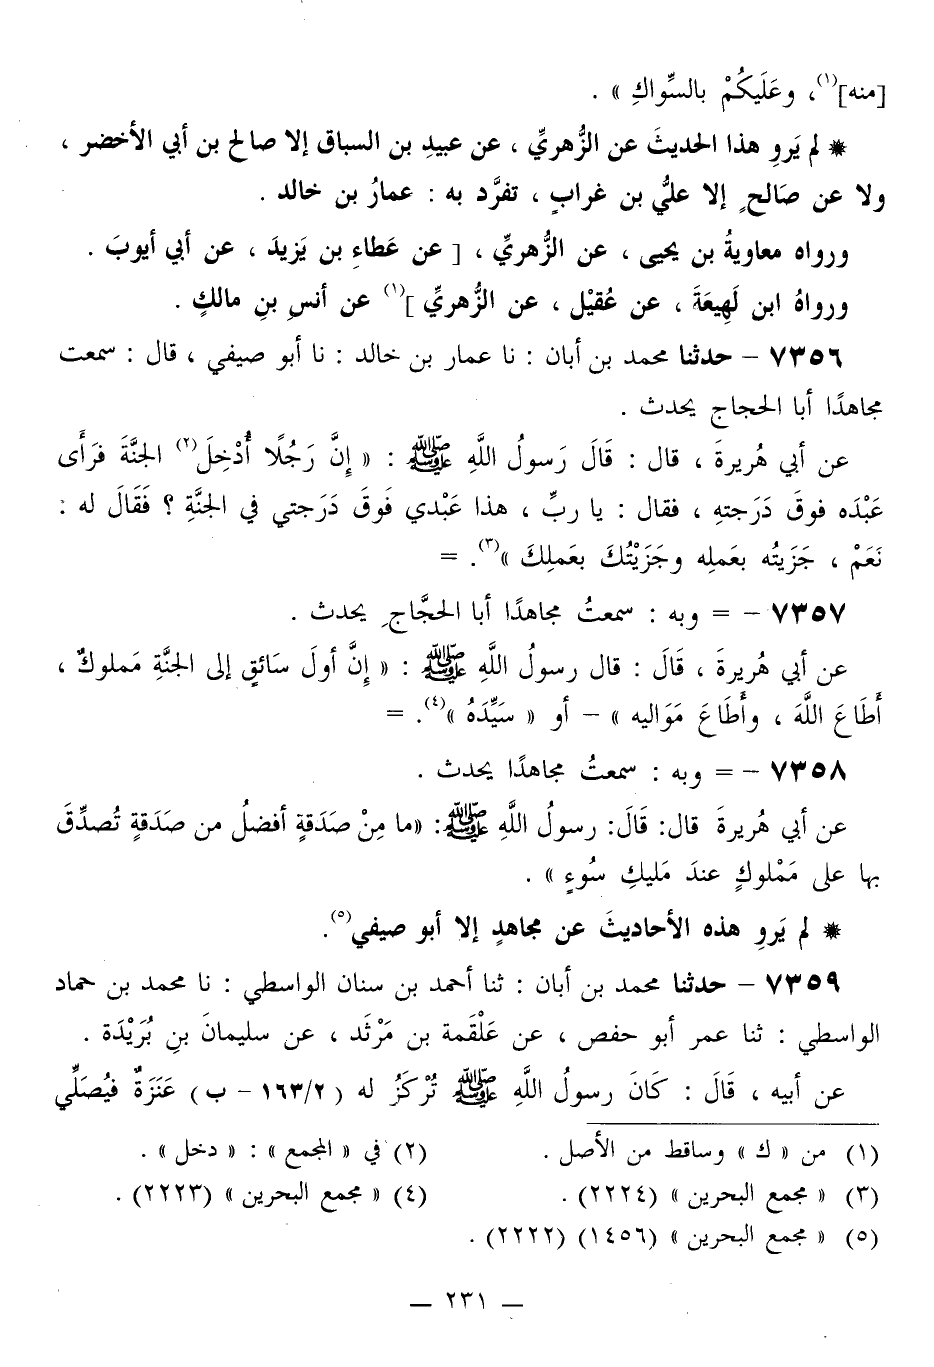 [منه]<sup>(١)</sup>، وعَلَيكُمْ بالسِّواكِ » .
* لم يَروِ هذا الحديثَ عن الزُّهريِّ ، عن عبيدِ بن السباق إلا صالح بن أبي الأخضر ،
ولا عن صَالحٍ إلا عليُّ بن غرابٍ ، تفرَّد به : عمارُ بن خالد .
ورواه معاويةُ بن يحيى ، عن الزُّهريِّ ، [ عن عَطاءِ بن يَزيدَ ، عن أبي أيوبَ .
ورواهُ ابن لَهِيعَةَ ، عن عُقيْل ، عن الزُّهريِّ ]<sup>(١)</sup> عن أنسِ بنِ مالكٍ .
٧٣٥٦ – حدثنا محمد بن أبان : نا عمار بن خالد : نا أبو صيفي ، قال : سمعت
مجاهدًا أبا الحجاج يحدث .
عن أبي هُريرةَ ، قال : قَالَ رَسولُ اللَّهِ ﷺ : « إِنَّ رَجُلًا أُدْخِلَ<sup>(٢)</sup> الجنَّةَ فرَأَى
عَبْدَه فوقَ دَرَجتهِ ، فقال : يا ربِّ ، هذا عَبْدي فَوقَ دَرَجتي في الجنَّةِ ؟ فَقَالَ له :
نَعَمْ ، جَزَيتُه بعَملِه وجَزَيْتُكَ بعَملِكَ »<sup>(٣)</sup>. =
٧٣٥٧ – = وبه : سمعتُ مجاهدًا أبا الحجَّاجِ يحدث .
عن أبي هُريرةَ ، قَالَ : قال رسولُ اللَّهِ ﷺ : « إِنَّ أولَ سَائقٍ إلى الجنَّةِ مَملوكٌ ،
أَطَاعَ اللَّهَ ، وأَطَاعَ مَوَاليه » – أو « سَيِّدَهُ »<sup>(٤)</sup>. =
٧٣٥٨ – = وبه : سمعتُ مجاهدًا يحدث .
عن أبي هُريرةَ قال: قَالَ: رسولُ اللَّهِ ﷺ: «ما مِنْ صَدَقةٍ أفضلُ من صدَقةٍ تُصدِّقَ
بها على مَمْلوكٍ عندَ مَليكِ سُوءٍ » .
* لم يَروِ هذه الأحاديثَ عن مجاهدٍ إلا أبو صيفي<sup>(٥)</sup>.
٧٣٥٩ – حدثنا محمد بن أبان : ثنا أحمد بن سنان الواسطي : نا محمد بن حماد
الواسطي : ثنا عمر أبو حفص ، عن عَلْقمة بن مَرْثَد ، عن سليمانَ بنِ بُرَيْدَة .
عن أبيه ، قَالَ : كَانَ رسولُ اللَّهِ ﷺ تُرْكَزُ له ( ١٦٣/٢ – ب ) عَنَزَةٌ فيُصَلِّي
(١) من « ك » وساقط من الأصل .
(٢) في « المجمع » : « دخل » .
(٣) « مجمع البحرين » (٢٢٢٤) .
(٤) « مجمع البحرين » (٢٢٢٣) .
(٥) « مجمع البحرين » (١٤٥٦) (٢٢٢٢) .
— ٢٣١ —